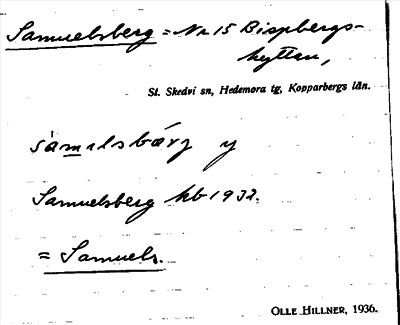 Samuelsberg = Nr 15 Bispbergs-
hyttan,
St. Skedvi sn, Hedemora tg, Kopparbergs län.
sàmɩlsbárg y
Samuelsberg kb 1932.
= Samuels.
OLLE HILLNER, 1936.